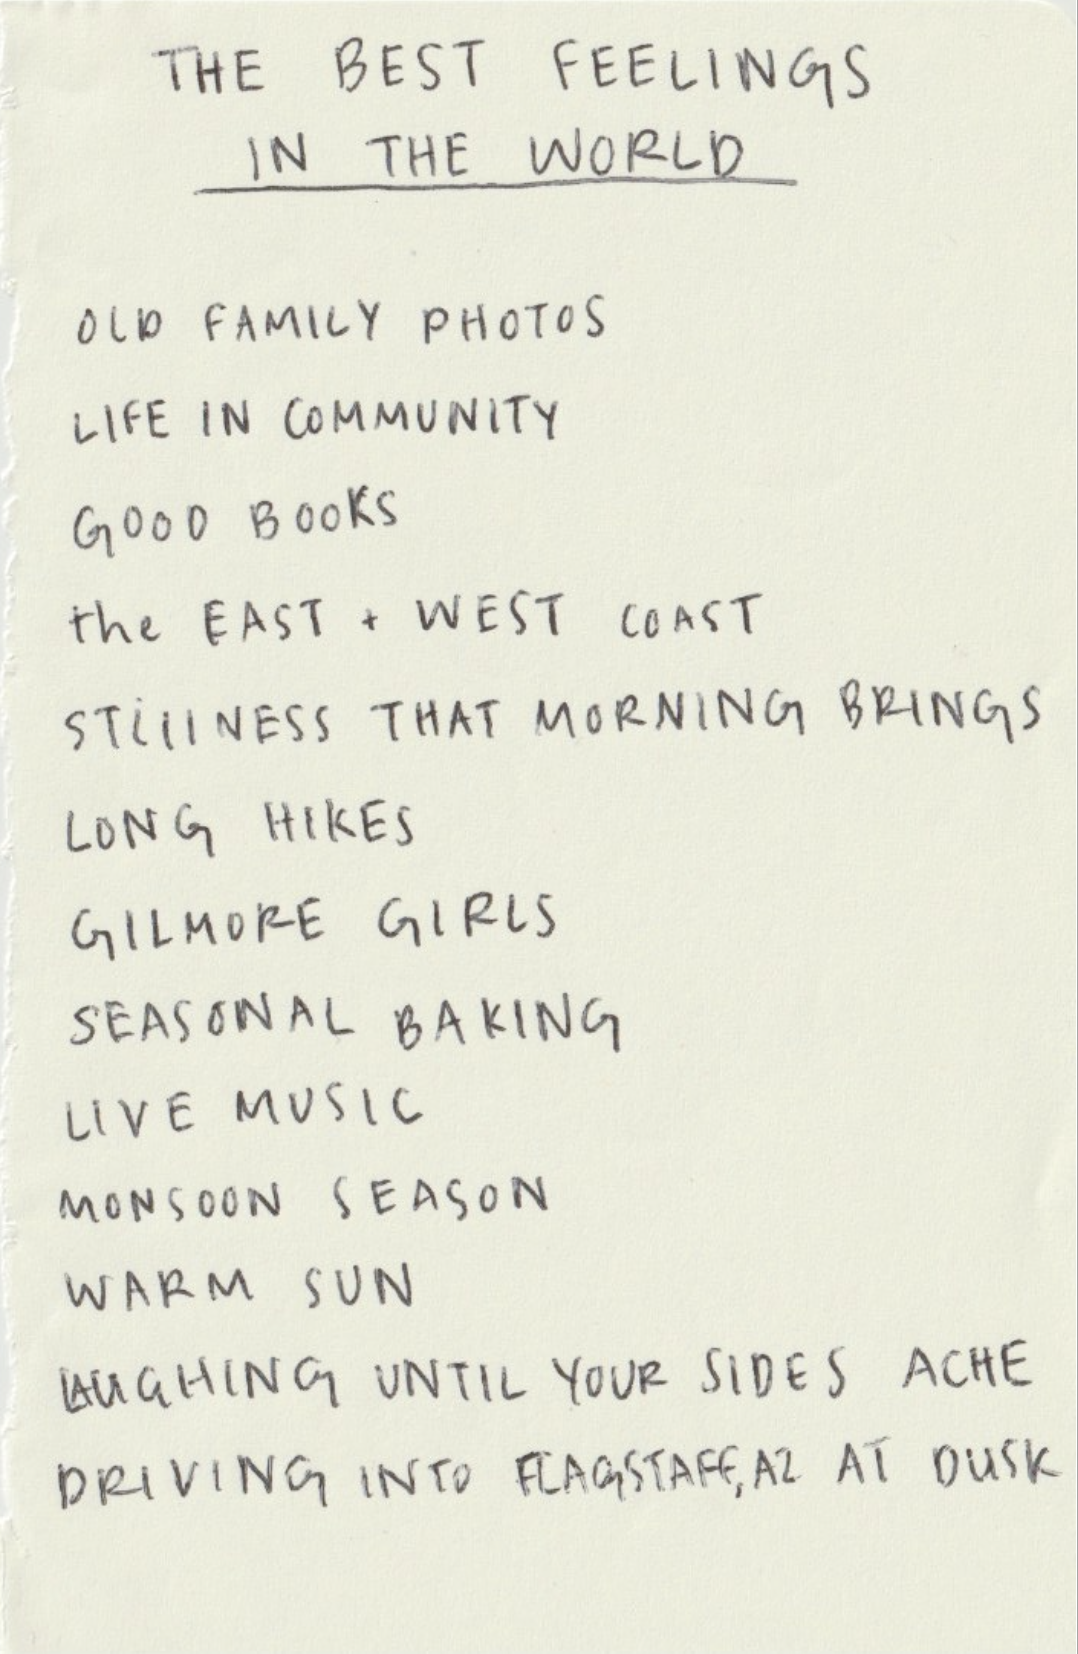 THE BEST FEELINGS
IN THE WORLD
OLD FAMILY PHOTOS
LIFE IN COMMUNITY
GOOD BOOKS
the EAST + WEST COAST
STillNESS THAT MORNING BRINGS
LONG HIKES
GILMORE GIRLS
SEASONAL BAKING
LIVE MUSIC
MONSOON SEASON
WARM SUN
LAUGHING UNTIL YOUR SIDES ACHE
DRIVING INTO FLAGSTAFF, AZ AT DUSK